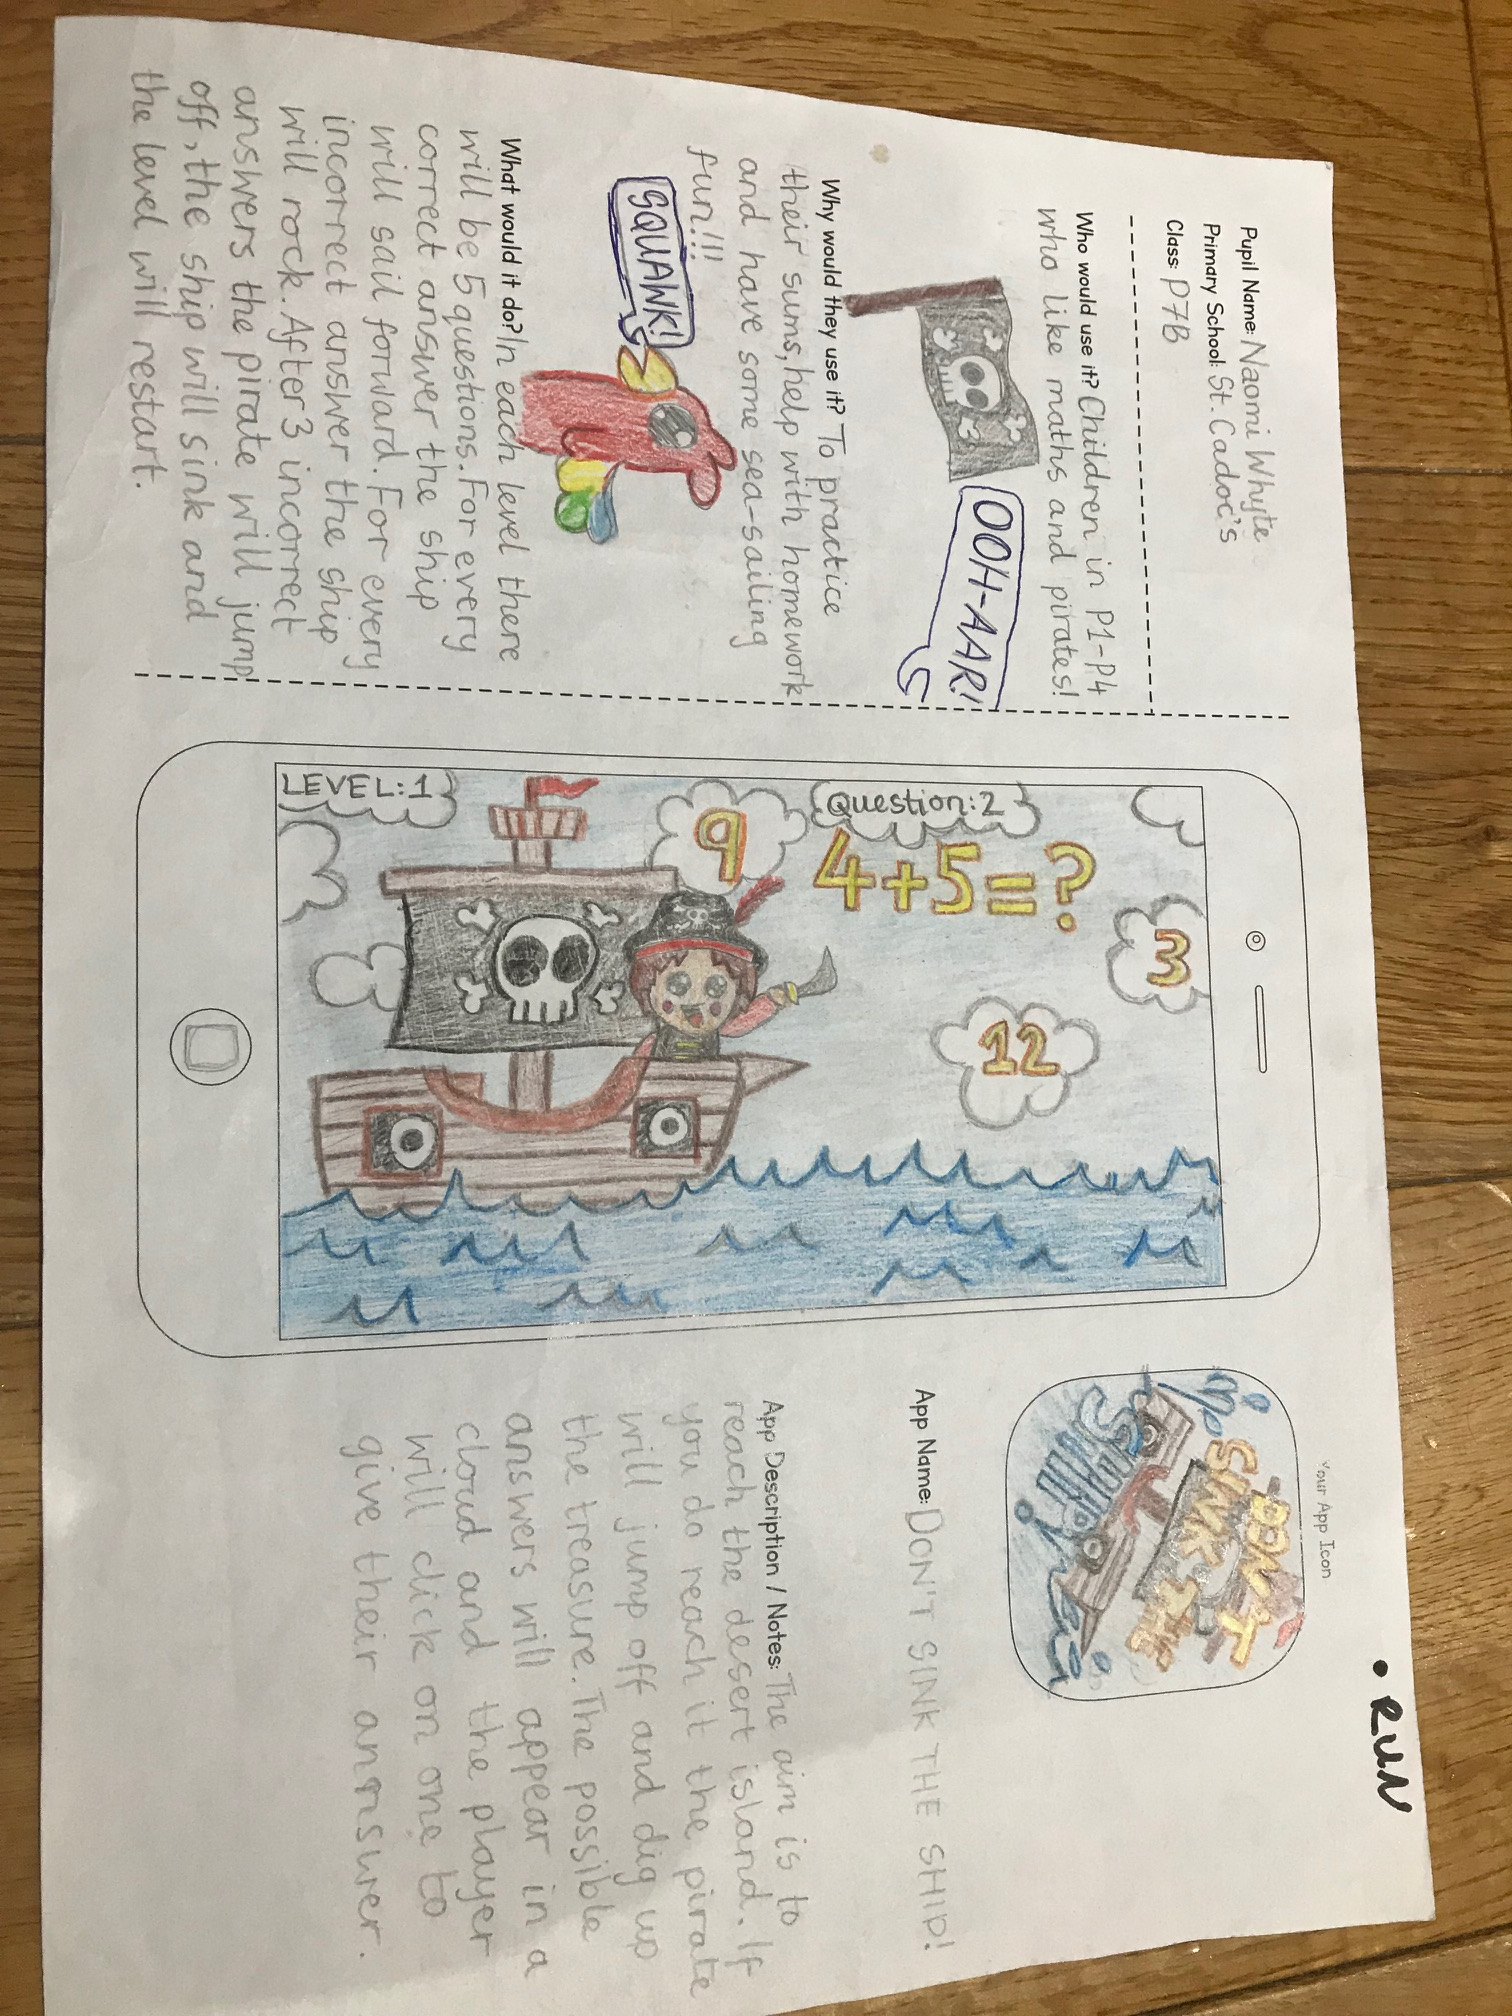 Pupil Name: Naomi Whyte
Primary School: St. Cadoc's
Class: P7B
Who would use it? Children in P1-P4
who like maths and pirates!
OOH-AAR!
Why would they use it? To practice
their sums, help with homework
and have some sea-sailing
fun!!!
SQUAWK!
What would it do? In each level there
will be 5 questions. For every
correct answer the ship
will sail forward. For every
incorrect answer the ship
will rock. After 3 incorrect
answers the pirate will jump
off, the ship will sink and
the level will restart.
Question:2
4+5=?
3
9
12
LEVEL:1
• RUN
Your App Icon
DON'T
SINK THE
SHIP
App Name: DON'T SINK THE SHIP!
App Description / Notes: The aim is to
reach the desert island. If
you do reach it the pirate
will jump off and dig up
the treasure. The possible
answers will appear in a
cloud and the player
will click on one to
give their answer.